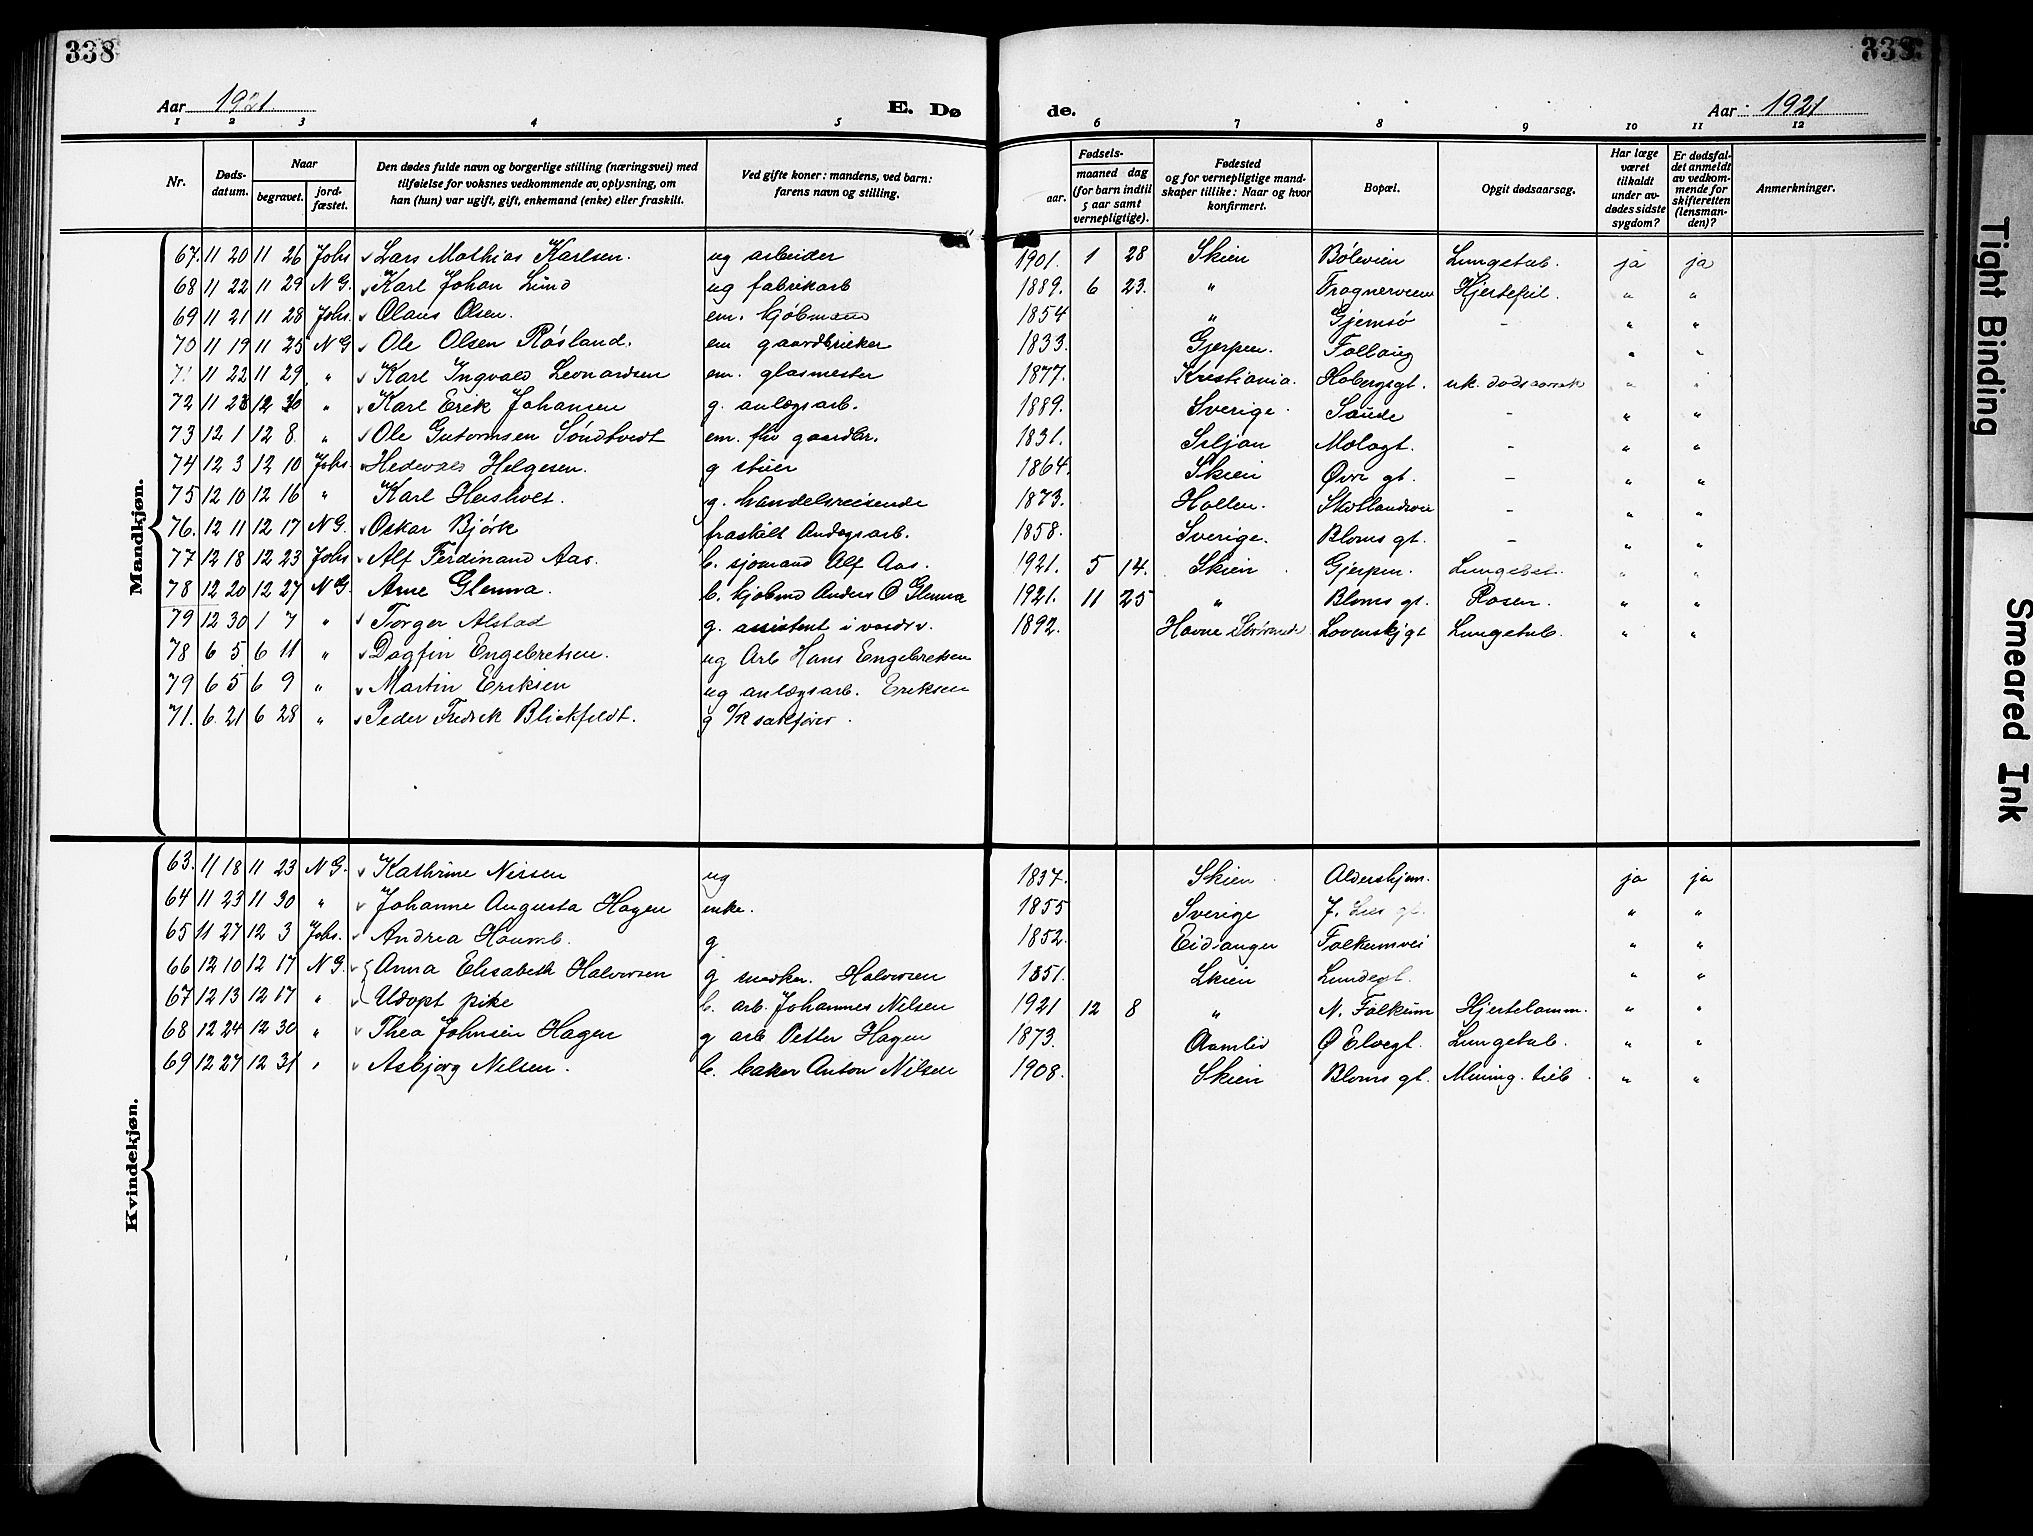 338
338
Aar 1921
E. Dø
de.
Aar: 1921
1 2 3 4 5 6 7 8 9 10 11 12
Nr.
Døds-
datum.
Naar
begravet.
jord-
fæstet.
Den dødes fulde navn og borgerlige stilling (næringsvei) med
tilføielse for voksnes vedkommende av oplysning, om
han (hun) var ugift, gift, enkemand (enke) eller fraskilt.
Ved gifte koner: mandens, ved barn:
farens navn og stilling.
Fødsels-
aar.
maaned dag
(for barn indtil
5 aar samt
vernepligtige).
Fødested
og for vernepligtige mand-
skaper tillike: Naar og hvor
konfirmert.
Bopæl.
Opgit dødsaarsag.
Har læge
været
tilkaldt
under av-
dødes sidste
sygdom?
Er dødsfal-
det anmeldt
av vedkom-
mende for
skifteretten
(lensman-
den)?
Anmerkninger.
Mandkjøn.
67. 11 20 11 26 Johs Lars Mathias Karlsen. ug arbeider 1901. 1 28 Skien Böleveien Lungetub. ja ja
68 11 22 11 29 N G. Karl Johan Lund ug fabrikarb 1889. 6 23. " Frognerveien Hjertefeil. " "
69 11 21 11 28 Johs. Olaus Olsen. em. kjöbmand 1854 " Gjemsö - " "
70 11 19 11 25 N G Ole Olsen Røsland. em gaardbruker 1833. Gjerpen. Follaug - " "
71 11 22 11 29 " Karl Ingvald Leonardsen em. glasmester 1877. Kristiania. Hobergsgt. uk. dødsaarsak " "
72 11 28 12 " Karl Erik Johansen g. anlægsarb. 1889. Sverige. Saude - " "
73 12 1 12 8. " Ole Gutormsen em. fhv gaardbr. 1831. Siljan Molagt. - " "
74 12 3 12 10 Johs. Helgesen. g stuer 1864. Skien Øvre gt. - " "
75 12 10 12 16 " Karl Hersholt. g. handelsreisende 1873. Hollen. - " "
76. 12 11 12 17 N G. Oskar Bjørk fraskilt Anlægsarb. 1858. Sverige. Bloms gt. - " "
77 12 18 12 23 Johs Alf Ferdinand Aas. b. sjömand Alf Aas. 1921. 5 14. Skien Gjerpen. Lungebet. " "
78 12 20 12 27 N G. Arne Glenna. b. kjöbmd Anders O Glenna 1921. 11 25 " Bloms gt. Rosen. " "
79 12 30 1 7 " Torger Alstad g. assistent i 1892. Lovenskj gt Lungetub. " "
78 6 5 6 11 " Dagfin Engebretsen. ug Arb Hans Engebretsen
79 6 5 6 9 " Martin Eriksen ug anlægsarb. Eriksen
71. 6. 21 6 28 " Peder Fredrik Blickfeldt. g o/r sakfører.
Kvindekjøn.
63. 11 18 11 23 N G. Kathrine Nissen ug 1837. Skien Aldershjem. ja ja
64 11 23 11 30 " Johanne Augusta Hagen enke. 1855 Sverige J. Lies gt. " "
65 11 27 12 3 Johs. Andrea Houmb. g 1852. Eidanger Falkumvei " "
66 12 10 12 17 N G. Anna Elisabeth Halvorsen g snedker. Halvorsen 1851. Skien Lundegt. " "
67 12 13 12 17 " Udöpt pike b. arb. Johannes Nilsen 1921 12 8 " N. Falkum Hjertelamm. " "
68 12 24 12 30 " Thea Johnsen Hagen g arb Petter Hagen 1873. Aamlid Ø Elvegt. Lungetub. " "
69 12 27 12 31 " Asbjørg Nilsen. b. baker Anton Nilsen 1908. Skien Bloms gt. Mening. tub. " "
Tight Binding
Smeared Ink